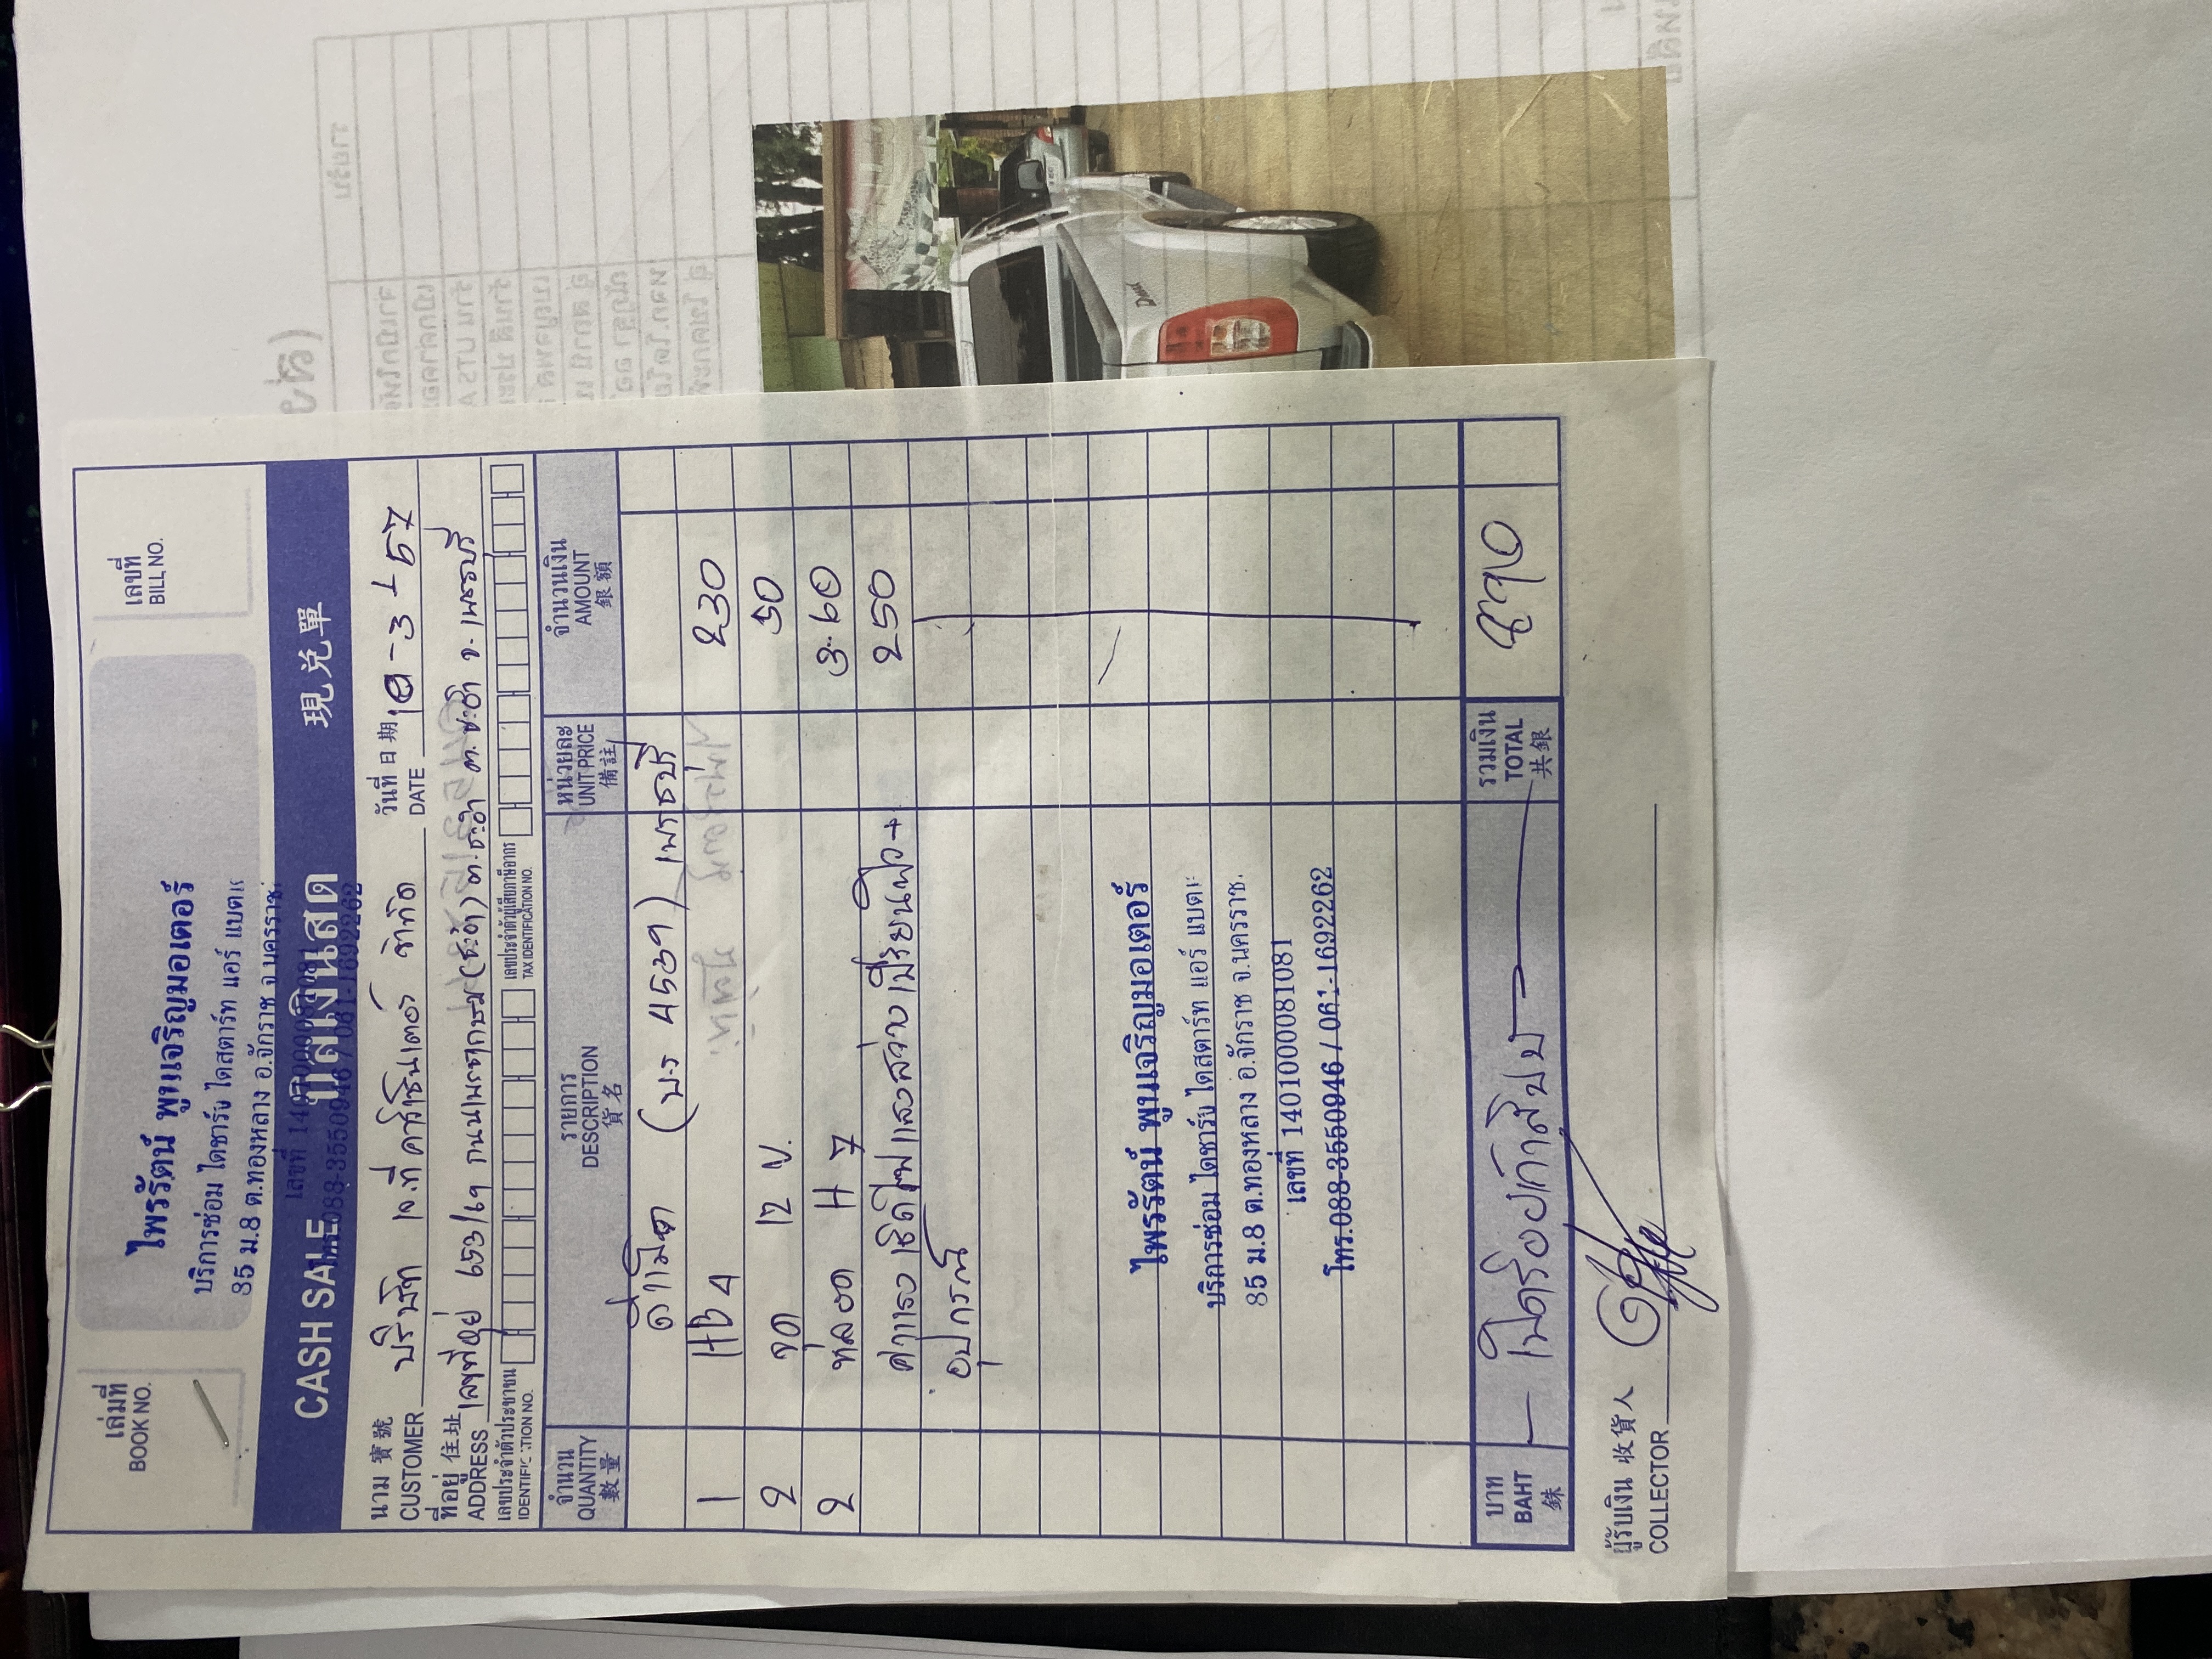 เล่มที่
BOOK NO.
เลขที่
BILL NO.
ไพรรัตน์ พูนเจริญมอเตอร์
บริการซ่อม ไดชาร์จ ไดสตาร์ท แอร์ แบตเ
85 ม.8 ต.ทองหลาง อ.จักราช จ.นครราช
เลขที่ 1401000081081
โทร.088-3550946 / 061-1692262
CASH SALE บิลเงินสด 現兌單
นาม 寶號
CUSTOMER บริษัท เจ.ที คาลิเบรชั่น จำกัด
วันที่ 日期
DATE 10-3-67
ที่อยู่ 住址
ADDRESS เลขที่อยู่ 653/69 ต.ชะอำ อ.ชะอำ จ.เพชรบุรี
เลขประจำตัวประชาชน
IDENTIFICATION NO.
เลขประจำตัวผู้เสียภาษีอากร
TAX IDENTIFICATION NO.
จำนวน QUANTITY 數量
รายการ DESCRIPTION 貨名
หน่วยละ UNIT PRICE 備註
จำนวนเงิน AMOUNT 銀額
ดีแม็ค (บร 4539) เพชรบุรี
1 HB4 230
2 12 V. 50
2 หลอด H 7 360
ค่าแรง เช็คไฟแสงสว่าง เปลี่ยนไฟ + 250
อุปกรณ์
ไพรรัตน์ พูนเจริญมอเตอร์
บริการซ่อม ไดชาร์จ ไดสตาร์ท แอร์ แบตเ
85 ม.8 ต.ทองหลาง อ.จักราช จ.นครราช.
เลขที่ 1401000081081
โทร.088-3550946 / 061-1692262
บาท BAHT 銖
แปดร้อยเก้าสิบบาท
รวมเงิน TOTAL 共銀
890
ผู้รับเงิน 收貨人
COLLECTOR